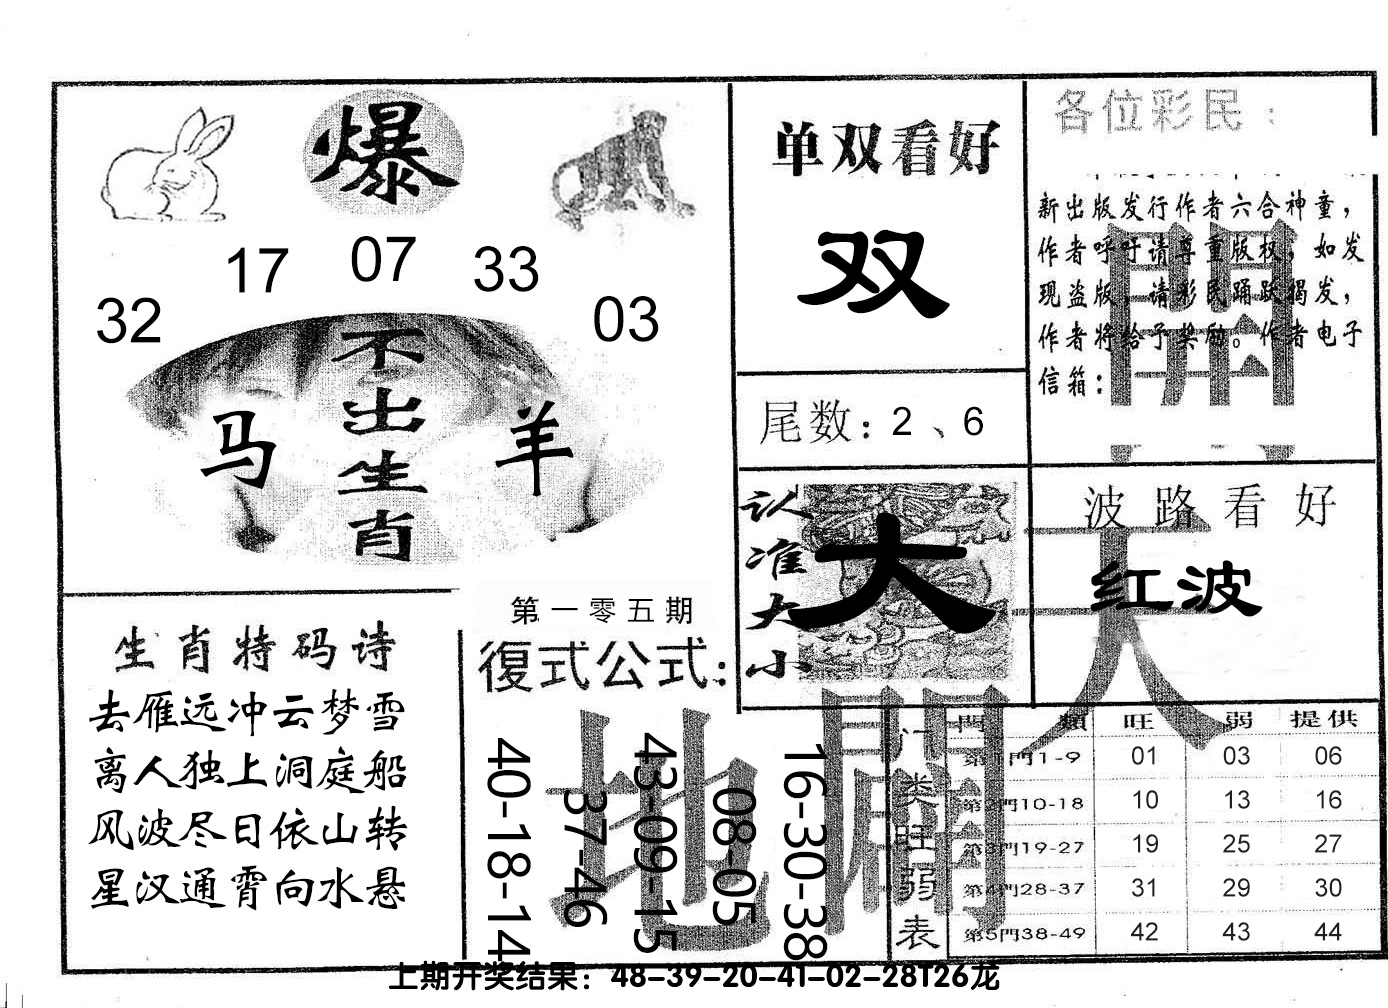 爆
17 07 33
32 03
不出生肖
马 羊
单双看好
双
尾数：2、6
各位彩民：
新出版发行作者六合神童，
作者呼吁请尊重版权，如发
现盗版，请彩民踊跃揭发，
作者将给予奖励。作者电子
信箱：
認准大小
大
波路看好
红波
開天
闢地
生肖特码诗
去雁远冲云梦雪
离人独上洞庭船
风波尽日依山转
星汉通霄向水悬
第一零五期
復式公式：
40-18-14
37-46
43-09-15
08-05
16-30-38
门类旺弱表
門類 旺 弱 提供
第1門1-9 01 03 06
第2門10-18 10 13 16
第3門19-27 19 25 27
第4門28-37 31 29 30
第5門38-49 42 43 44
上期开奖结果：48-39-20-41-02-28T26龙